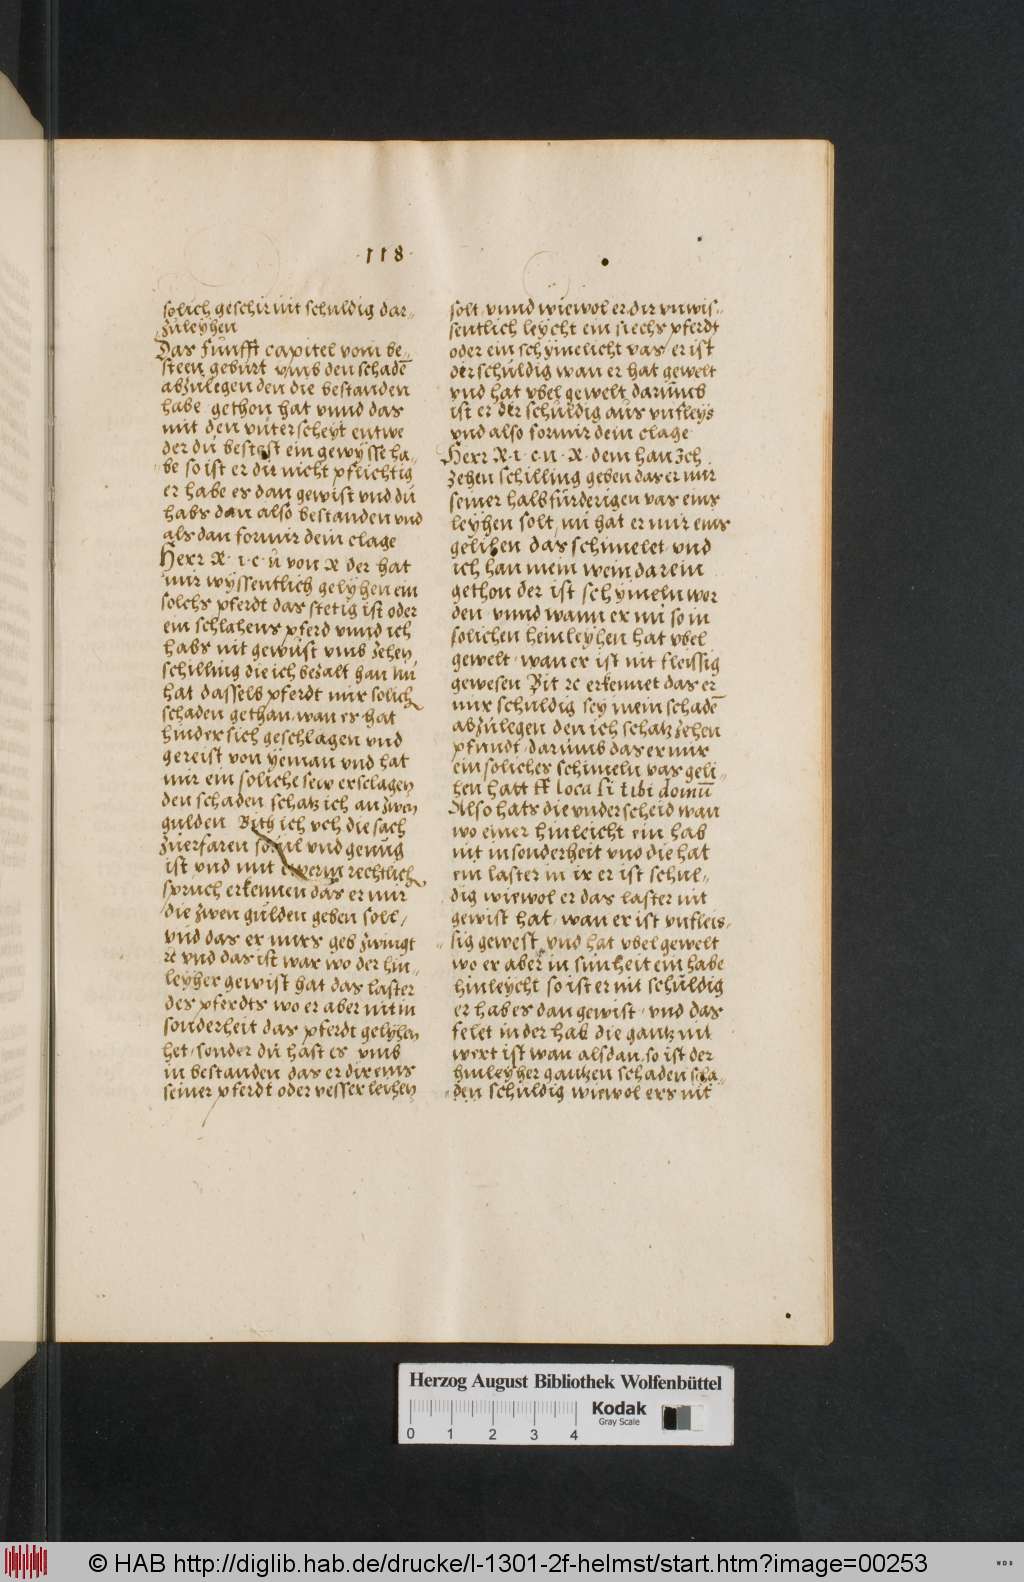 ·118·
solich geschir nit schuldig dar-
zuleyhen
Das fünfft capitel vom be-
steen gebürt vmb den schadē
abzulegen den die bestanden
habe gethon hat vnnd das
mit den vnterscheyt entwe
der dü bestost ein gewysse ha-
be so ist er dir nicht pflichtig
er habe es dan gewist vnd dü
habs dan also bestanden vnd
als dan formir dein clage
Herr R· i· c· ü von R der hat
mir wyssentlich gelyhen ein
solchs pferdt das stetig ist oder
ein schlahens pferd vnnd ich
habs nit gewüst vmb zehen
schilling die ich bezalt han nü
hat dasselb pferdt mir solich
schaden gethan, wan es hat
hinder sich geschlagen vnd
gereist von yeman vnd hat
mir ein soliche sew erschlagen
den schaden schatz ich an zwen
gulden Bith ich vch die sach
züerfaren souil vnd genüg
ist vnd mit ewerm rechtlich
spruch erkennen das er mir
die zwen gülden geben soll/
vnd das er mirs geb zwingt
rc vnd das ist war wo der hin-
leyher gewist hat das laster
des pferdts wo er aber nit in
sonderheit das pferdt gelyhen
het/ sonder dü hast es vmb
in bestanden das er dir eins
seiner pferdt oder vesser leihen
solt vnnd wiewol er dir vnwis-
sentlich leycht ein siechs pferdt
oder ein schymelicht vas er ist
der schüldig wan er hat gewelt
vnd hat vbel gewelt darümb
ist er der schüldig aus vnfleys
vnd also formir dein clage
Herr R· i· c· n· R· dem han ich
zehen schilling geben das er mir
seiner halbfürderigen vas eins
leyhen solt, nü hat er mir eins
gelihen das schimelet vnd
ich han mein wein darein
gethon der ist schymeln wor
den vnnd wann er nü so in
solichen heinleyhen hat vbel
gewelt, wan er ist nit fleissig
gewesen Bit rc erkennet das er
mir schüldig sey mein schadē
abzülegen den ich schatz zehen
pfundt, darümb das er mir
ein soliches schimeln vas geli-
hen hatt ff loca si tibi domū
Also hats die vnderscheid wan
wo einer hinleicht ein hab
nit in sonderheit vnd die hat
ein laster in ir er ist schul-
dig wiewol er das laster nit
gewist hat, wan er ist vnfleis-
sig gewest, vnd hat vbel gewelt
wo er aber in sünheit ein habe
hinleycht so ist er nit schüldig
er hab es dan gewist, vnd das
felet in der hab die gantz nit
wert ist wan alsdan, so ist der
hinleyher gantzen schaden scha-
den schüldig wiewol ers nit
Herzog August Bibliothek Wolfenbüttel
0 1 2 3 4
Kodak
Gray Scale
© HAB http://diglib.hab.de/drucke/l-1301-2f-helmst/start.htm?image=00253
WDB